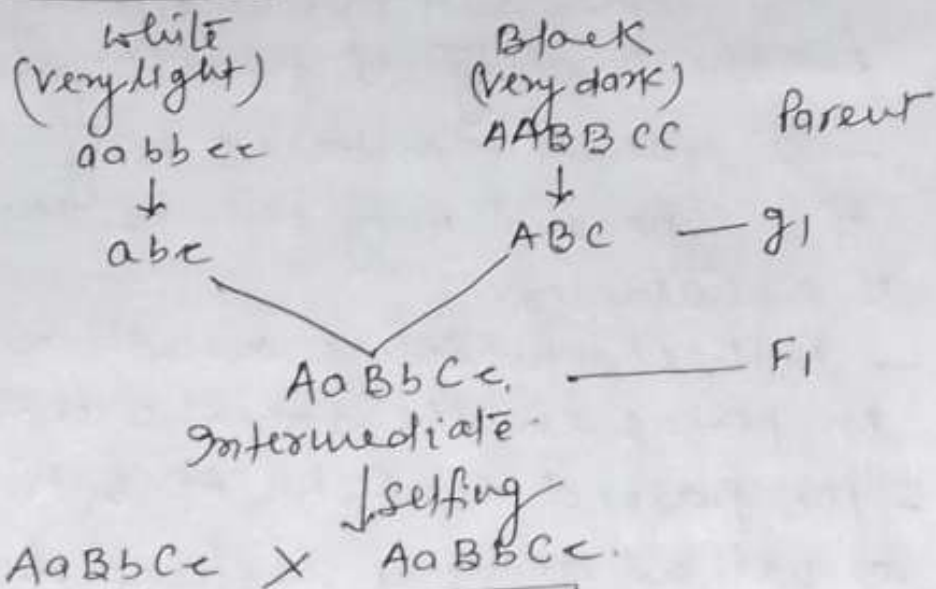 white Black
(very light) (very dark) Parent
aabbcc AABBCC
abc ABC — g1
AaBbCc. F1
Intermediate
selfing
AaBbCc X AaBbCc.